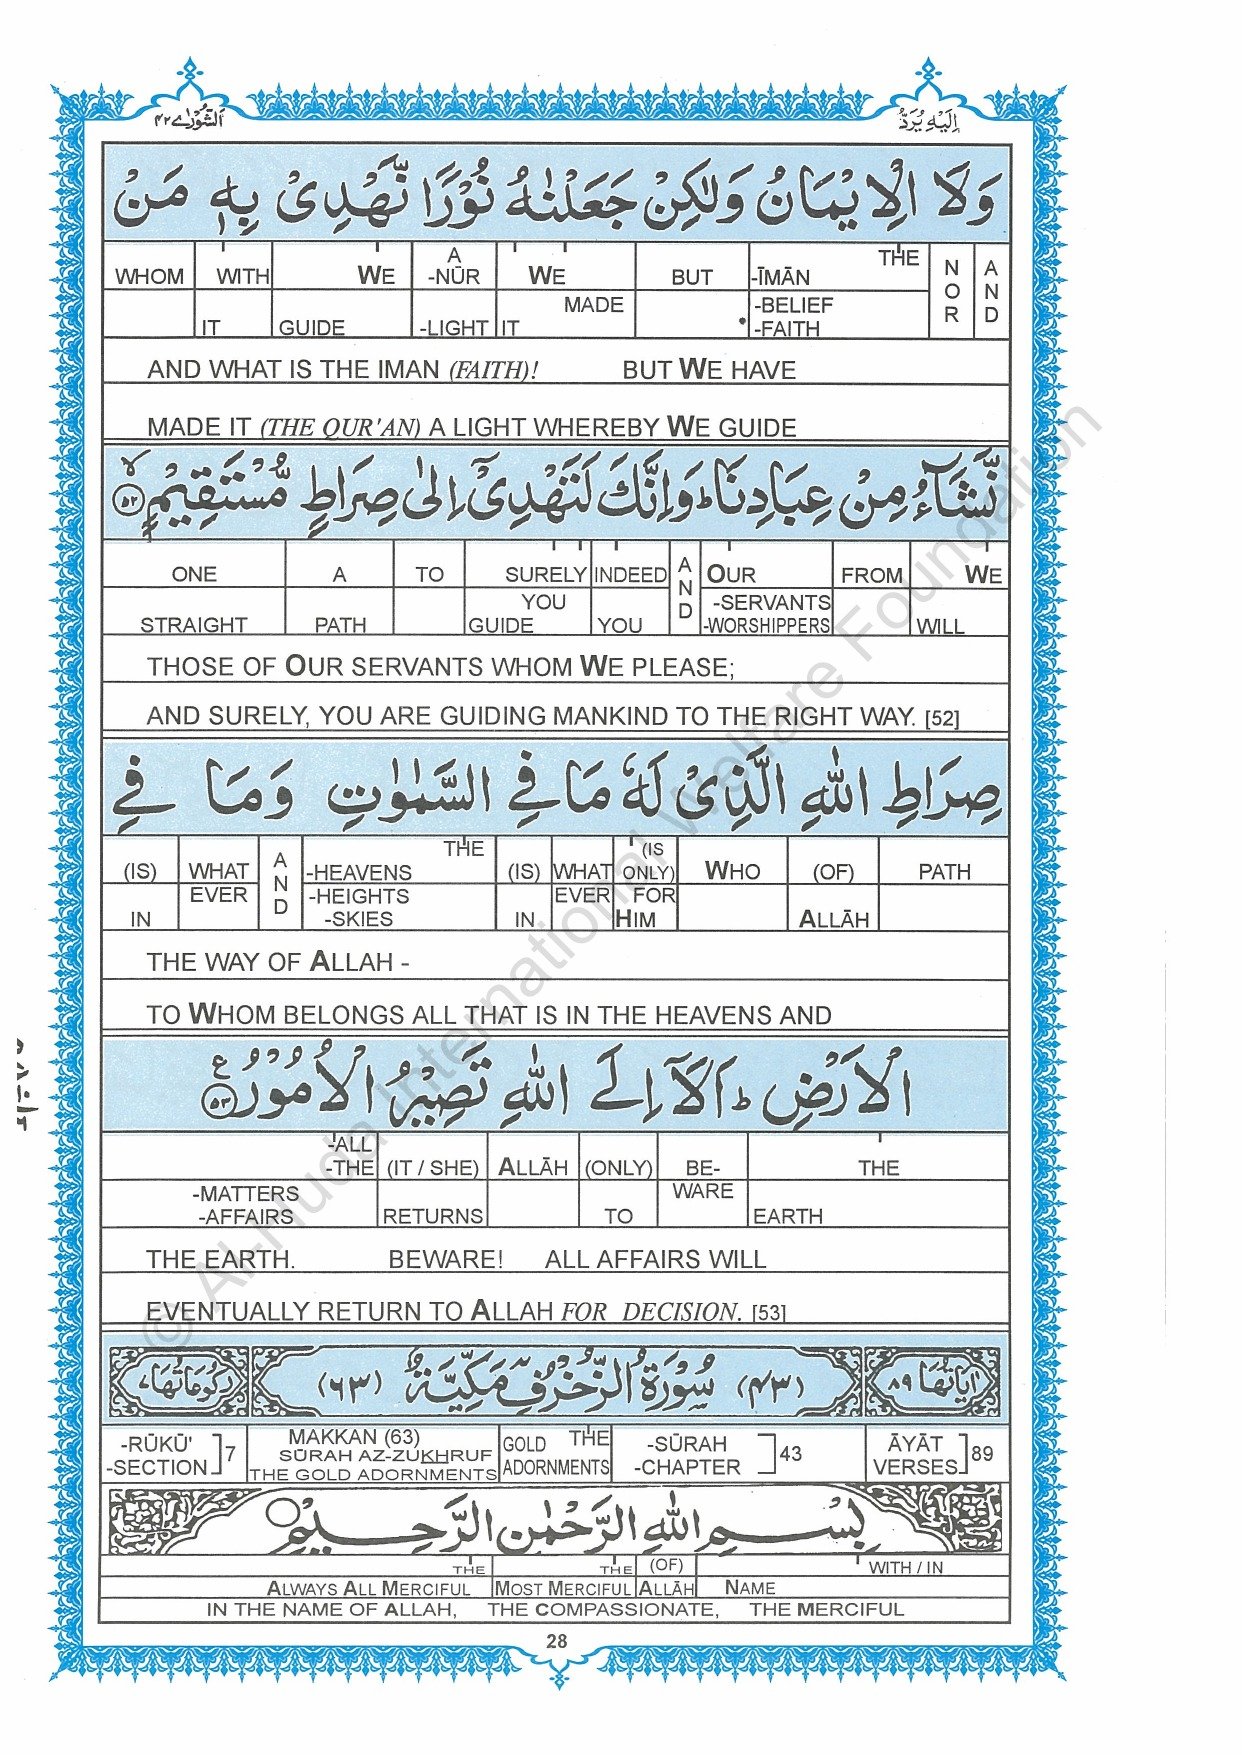 اِلَيْهِ يُرَدُّ
اَلشُّوْرٰى ٤٢
وَلَا الْاِيْمَانُ وَلٰكِنْ جَعَلْنٰهُ نُوْرًا نَّهْدِيْ بِهٖ مَنْ
WHOM WITH WE A -NŪR WE BUT THE -ĪMĀN NOR AND
IT GUIDE -LIGHT IT MADE -BELIEF -FAITH
AND WHAT IS THE IMAN (FAITH)! BUT WE HAVE
MADE IT (THE QUR'AN) A LIGHT WHEREBY WE GUIDE
نَّشَآءُ مِنْ عِبَادِنَا ؕ وَاِنَّكَ لَتَهْدِيْٓ اِلٰى صِرَاطٍ مُّسْتَقِيْمٍ ۙ ٥٢
ONE A TO SURELY INDEED AND OUR FROM WE
STRAIGHT PATH YOU GUIDE YOU -SERVANTS -WORSHIPPERS WILL
THOSE OF OUR SERVANTS WHOM WE PLEASE;
AND SURELY, YOU ARE GUIDING MANKIND TO THE RIGHT WAY. [52]
صِرَاطِ اللّٰهِ الَّذِيْ لَهٗ مَا فِي السَّمٰوٰتِ وَمَا فِي
(IS) WHAT AND THE -HEAVENS (IS) WHAT (IS ONLY) WHO (OF) PATH
IN EVER -HEIGHTS -SKIES IN EVER FOR HIM ALLĀH
THE WAY OF ALLAH -
TO WHOM BELONGS ALL THAT IS IN THE HEAVENS AND
الْاَرْضِ ؕ اَلَآ اِلَى اللّٰهِ تَصِيْرُ الْاُمُوْرُ ع ٥٣
-ALL -THE (IT / SHE) ALLĀH (ONLY) BE- THE
-MATTERS -AFFAIRS RETURNS TO WARE EARTH
THE EARTH. BEWARE! ALL AFFAIRS WILL
EVENTUALLY RETURN TO ALLAH FOR DECISION. [53]
اٰيَاتُهَا ٨٩ (٤٣) سُوْرَةُ الزُّخْرُفِ مَكِّيَّةٌ (٦٣) رُكُوْعَاتُهَا ٧
-RŪKŪ' -SECTION ] 7 MAKKAN (63) SŪRAH AZ-ZUKHRUF THE GOLD ADORNMENTS GOLD THE ADORNMENTS -SŪRAH -CHAPTER ] 43 ĀYĀT VERSES ] 89
بِسْمِ اللّٰهِ الرَّحْمٰنِ الرَّحِيْمِ
THE THE (OF) WITH / IN
ALWAYS ALL MERCIFUL MOST MERCIFUL ALLĀH NAME
IN THE NAME OF ALLAH, THE COMPASSIONATE, THE MERCIFUL
28
© Al-Huda International Welfare Foundation